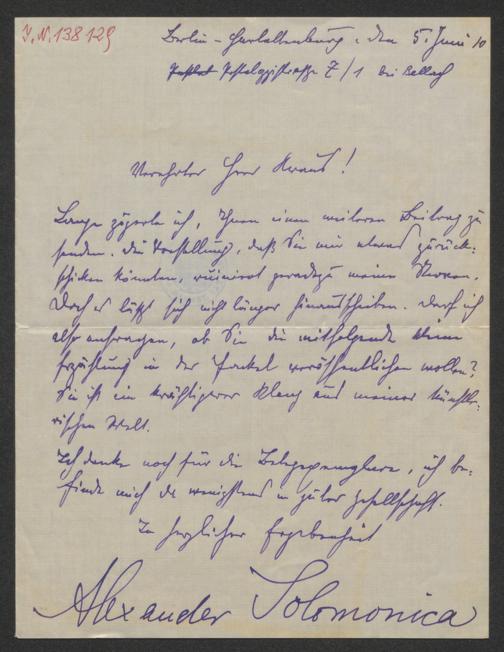 I.N. 138129
Berlin-Charlottenburg, den 5. Juni 10
Pestalozzistraße 7/1 bei Bellach
Verehrter Herr Kraus!
Lange zögerte ich, Ihnen einen weiteren Beitrag zu
senden. Die Vorstellung, daß Sie mir etwas zurück-
schicken könnten, ruiniert geradezu meine Nerven.
Doch es läßt sich nicht länger hinausschieben. Darf ich
also anfragen, ob Sie die mitfolgende kleine
Erzählung in der Fackel veröffentlichen wollen?
Sie ist ein kräftigerer Klang aus meiner künstle-
rischen Welt.
Ich danke noch für die Belegexemplare, ich be-
finde mich da wenigstens in guter Gesellschaft.
In herzlicher Ergebenheit
Alexander Solomonica